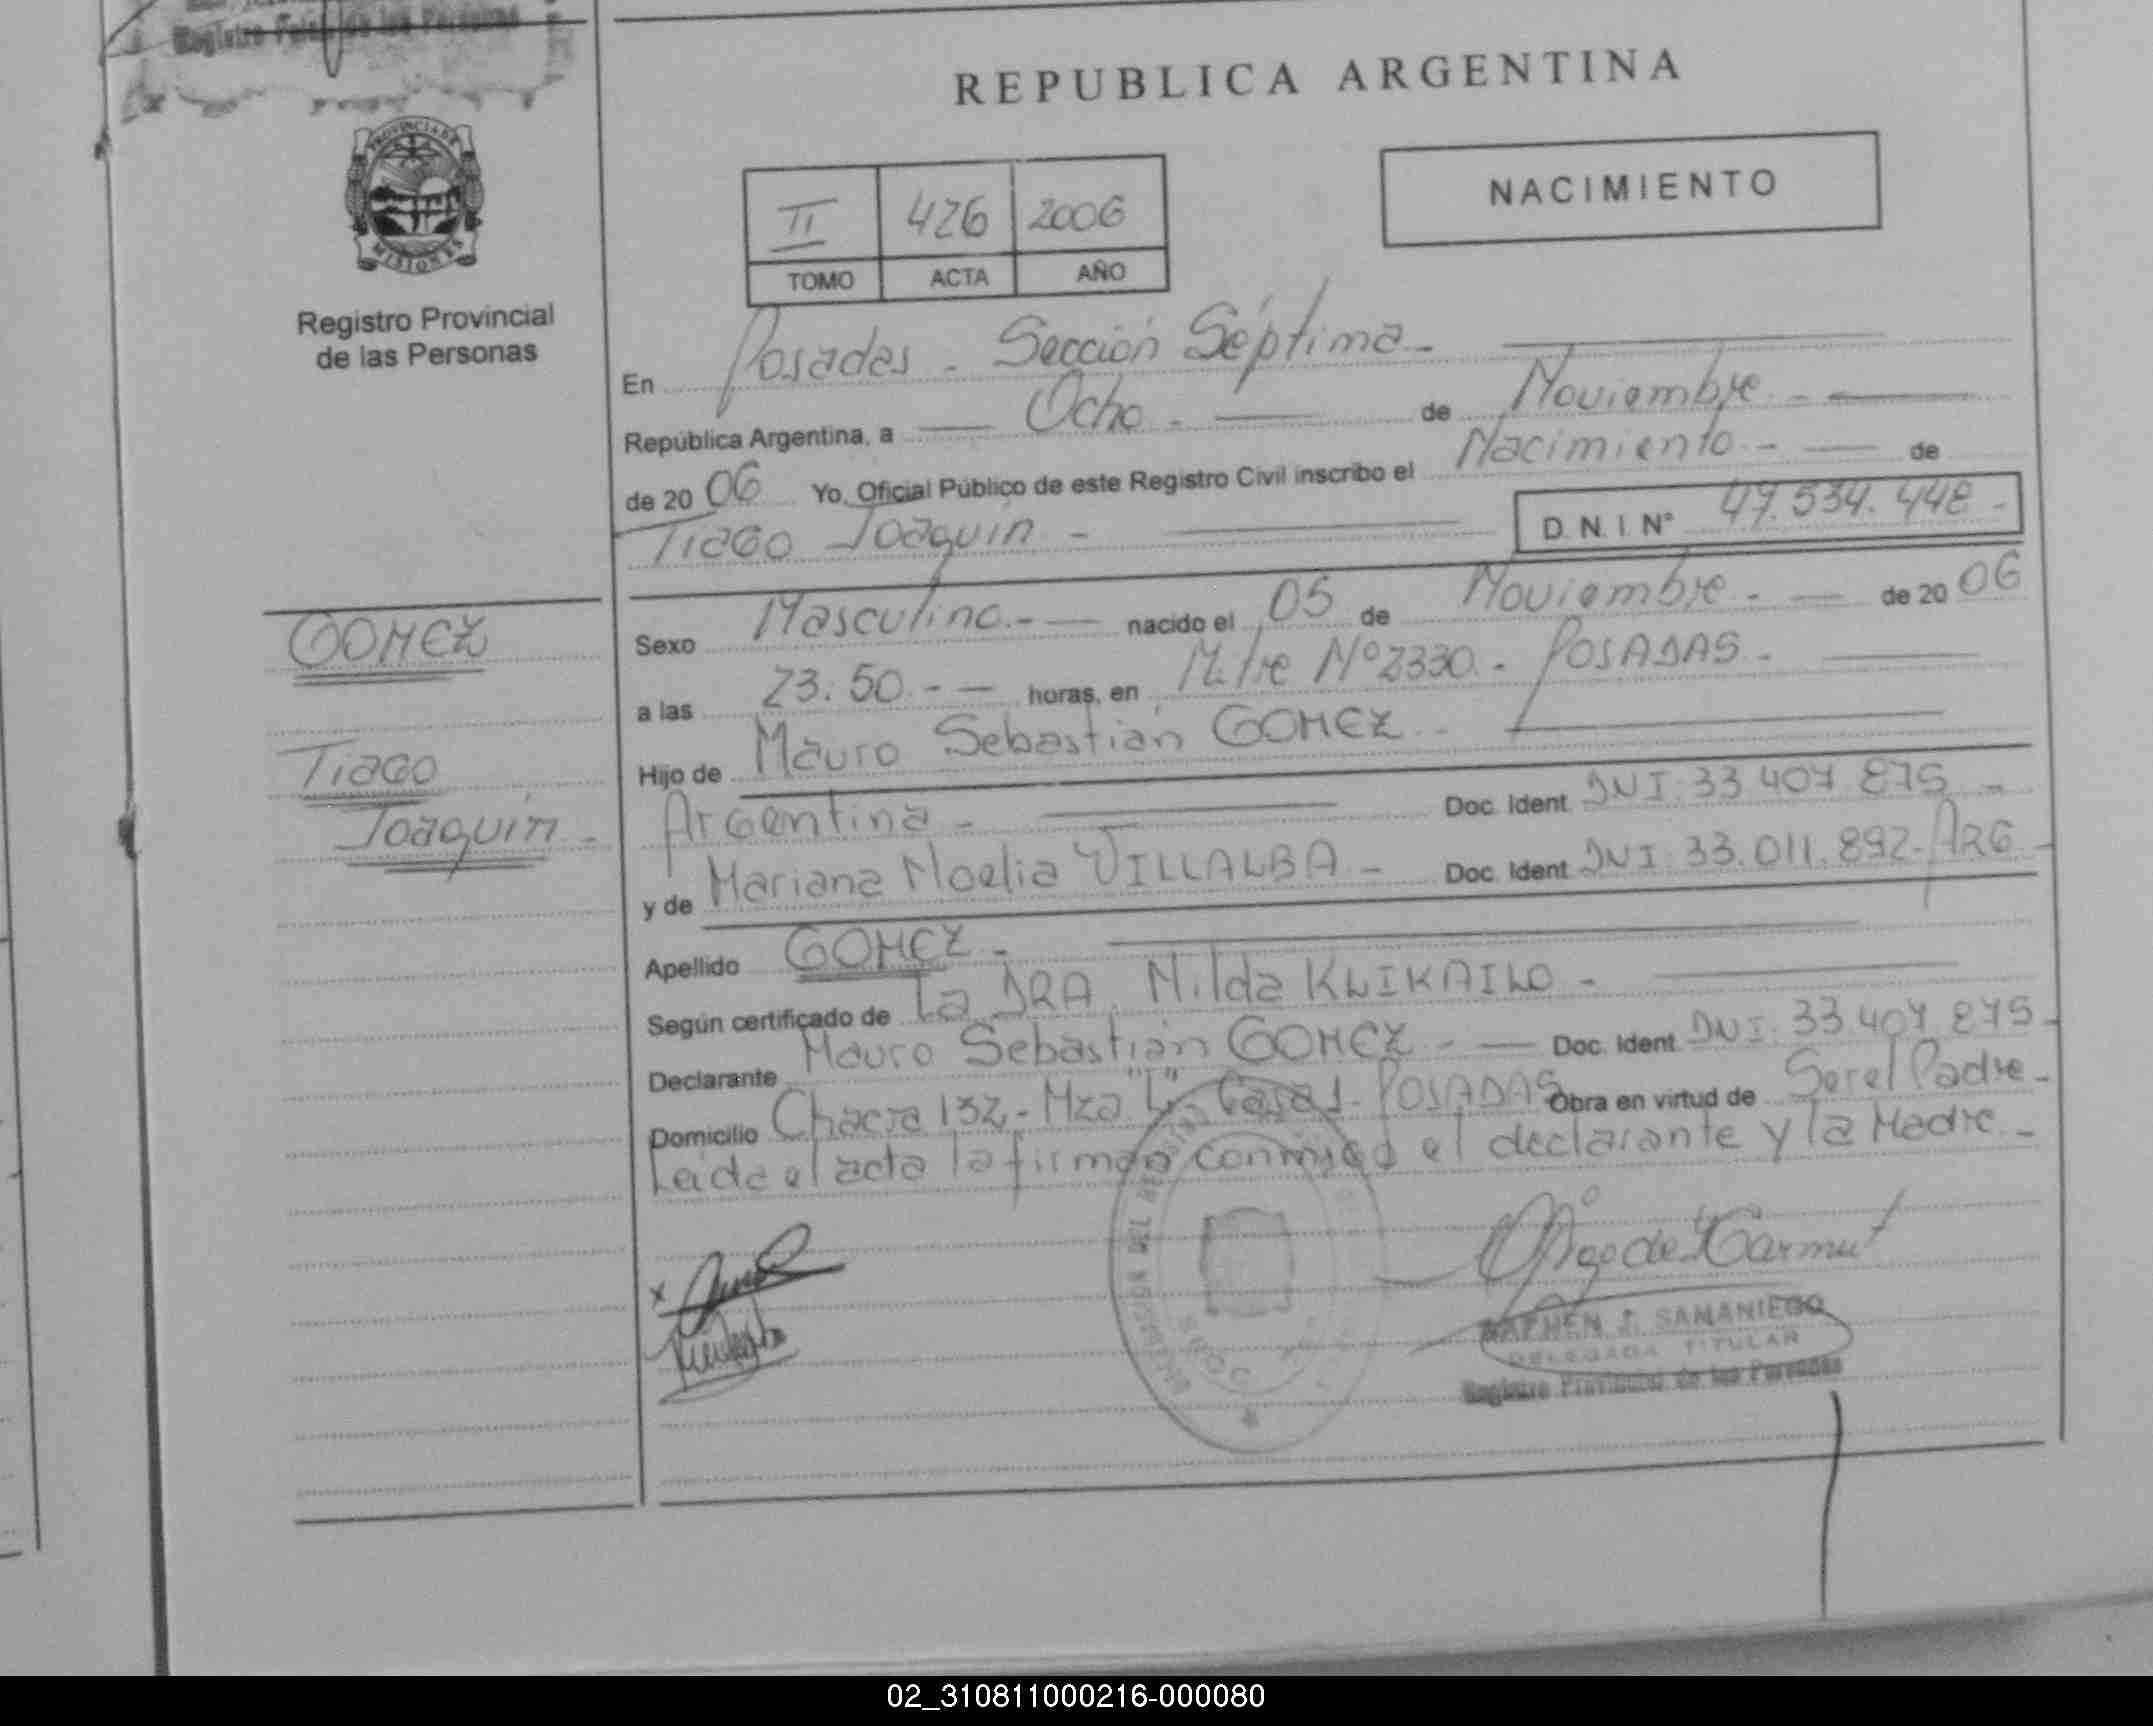 Registro Provincial de las Personas
REPUBLICA ARGENTINA
PROVINCIA DE
MISIONES
Registro Provincial
de las Personas
NACIMIENTO
II 426 2006
TOMO ACTA AÑO
En Posadas - Sección Séptima -
República Argentina, a Ocho - de Noviembre -
de 2006 Yo, Oficial Público de este Registro Civil inscribo el Nacimiento - de
Tiago Joaquín - D.N.I. Nº 49.534.448 -
GOMEZ
Tiago
Joaquín -
Sexo Masculino.- nacido el 05 de Noviembre - de 2006
a las 23.50.- - horas, en Mitre Nº 2330. - POSADAS -
Hijo de Mauro Sebastián GOMEZ -
Argentina - Doc. Ident. DNI. 33.407.875 -
y de Mariana Noelia VILLALBA - Doc. Ident. DNI. 33.011.892 - ARG -
Apellido GOMEZ -
Según certificado de La DRA. Nilda KLIKAILO -
Declarante Mauro Sebastián GOMEZ - Doc. Ident. DNI. 33.407.875 -
Domicilio Chacra 132 - Mza "L" Casa 1 - POSADAS Obra en virtud de Ser el Padre -
Leida el acta la firman conmigo el declarante y la Madre -
x
SAMANIEGO
DELEGADA TITULAR
Registro Provincial de las Personas
02_310811000216-000080